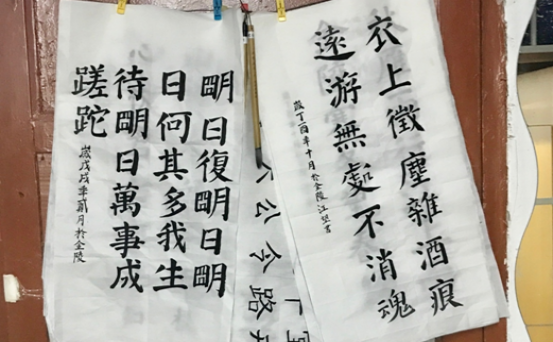 衣上徵塵雜酒痕
遠游無處不消魂
歲丁酉年十月於金陵江
公分路
眀日復眀日眀
日何其多我生
待眀日萬事成
蹉跎
歲戊戌年貳月於金陵